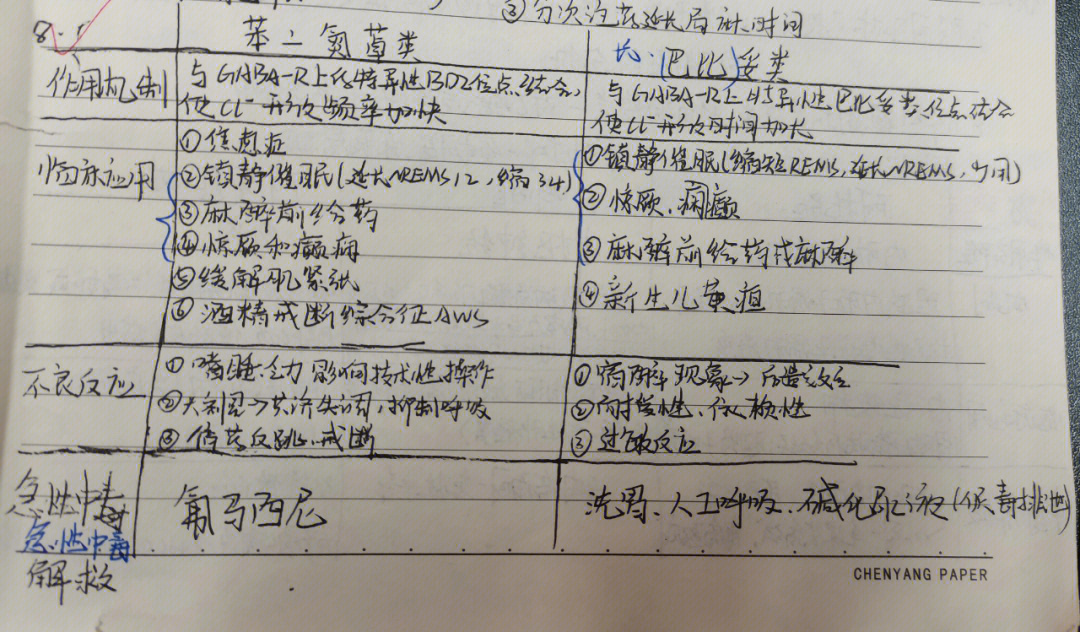 ③分次注药延长局麻时间
8.1
苯二氮䓬类
长.(巴比)妥类
作用机制
与GABA-R上的特异性BDZ位点结合,
使Cl⁻形成频率加快
与GABA-R上特异性巴比妥类位点结合
使Cl⁻形成时间加长
临床应用
①焦虑症
②镇静催眠(延长NREMS12,缩34)
③麻醉前给药
④惊厥和癫痫
⑤缓解肌紧张
⑥酒精戒断综合征AWS
①镇静催眠(缩短REMS,延长NREMS,少用)
②惊厥、癫痫
③麻醉前给药或麻醉
④新生儿黄疸
不良反应
①嗜睡乏力影响技术性操作
②大剂量→共济失调,抑制呼吸
③停药反跳、戒断
①宿醉现象→后遗效应
②耐受性、依赖性
③过敏反应
急性中毒
急性中毒
解救
氟马西尼
洗胃、人工呼吸、碱化尿液(促毒排泄)
CHENYANG PAPER